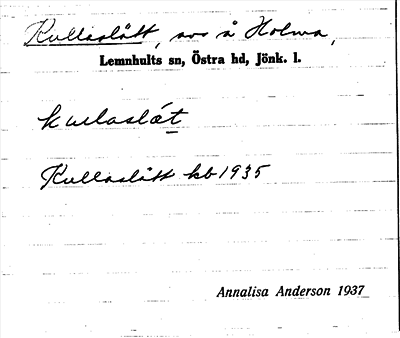 Kullaslått, avs å Holma,
Lemnhults sn, Östra hd, Jönk. l.
kullaslåt
Kullaslått kb 1935
Annalisa Anderson 1937